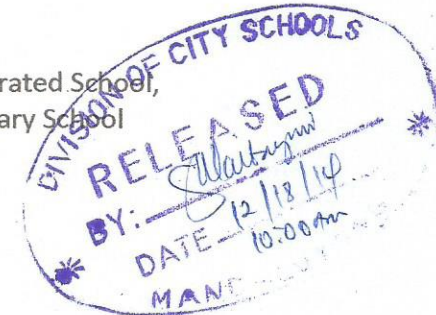 rated School,
ary School
DIVISION OF CITY SCHOOLS
RELEASED
BY:
DATE 12/18/14
10:00 AM
MAN